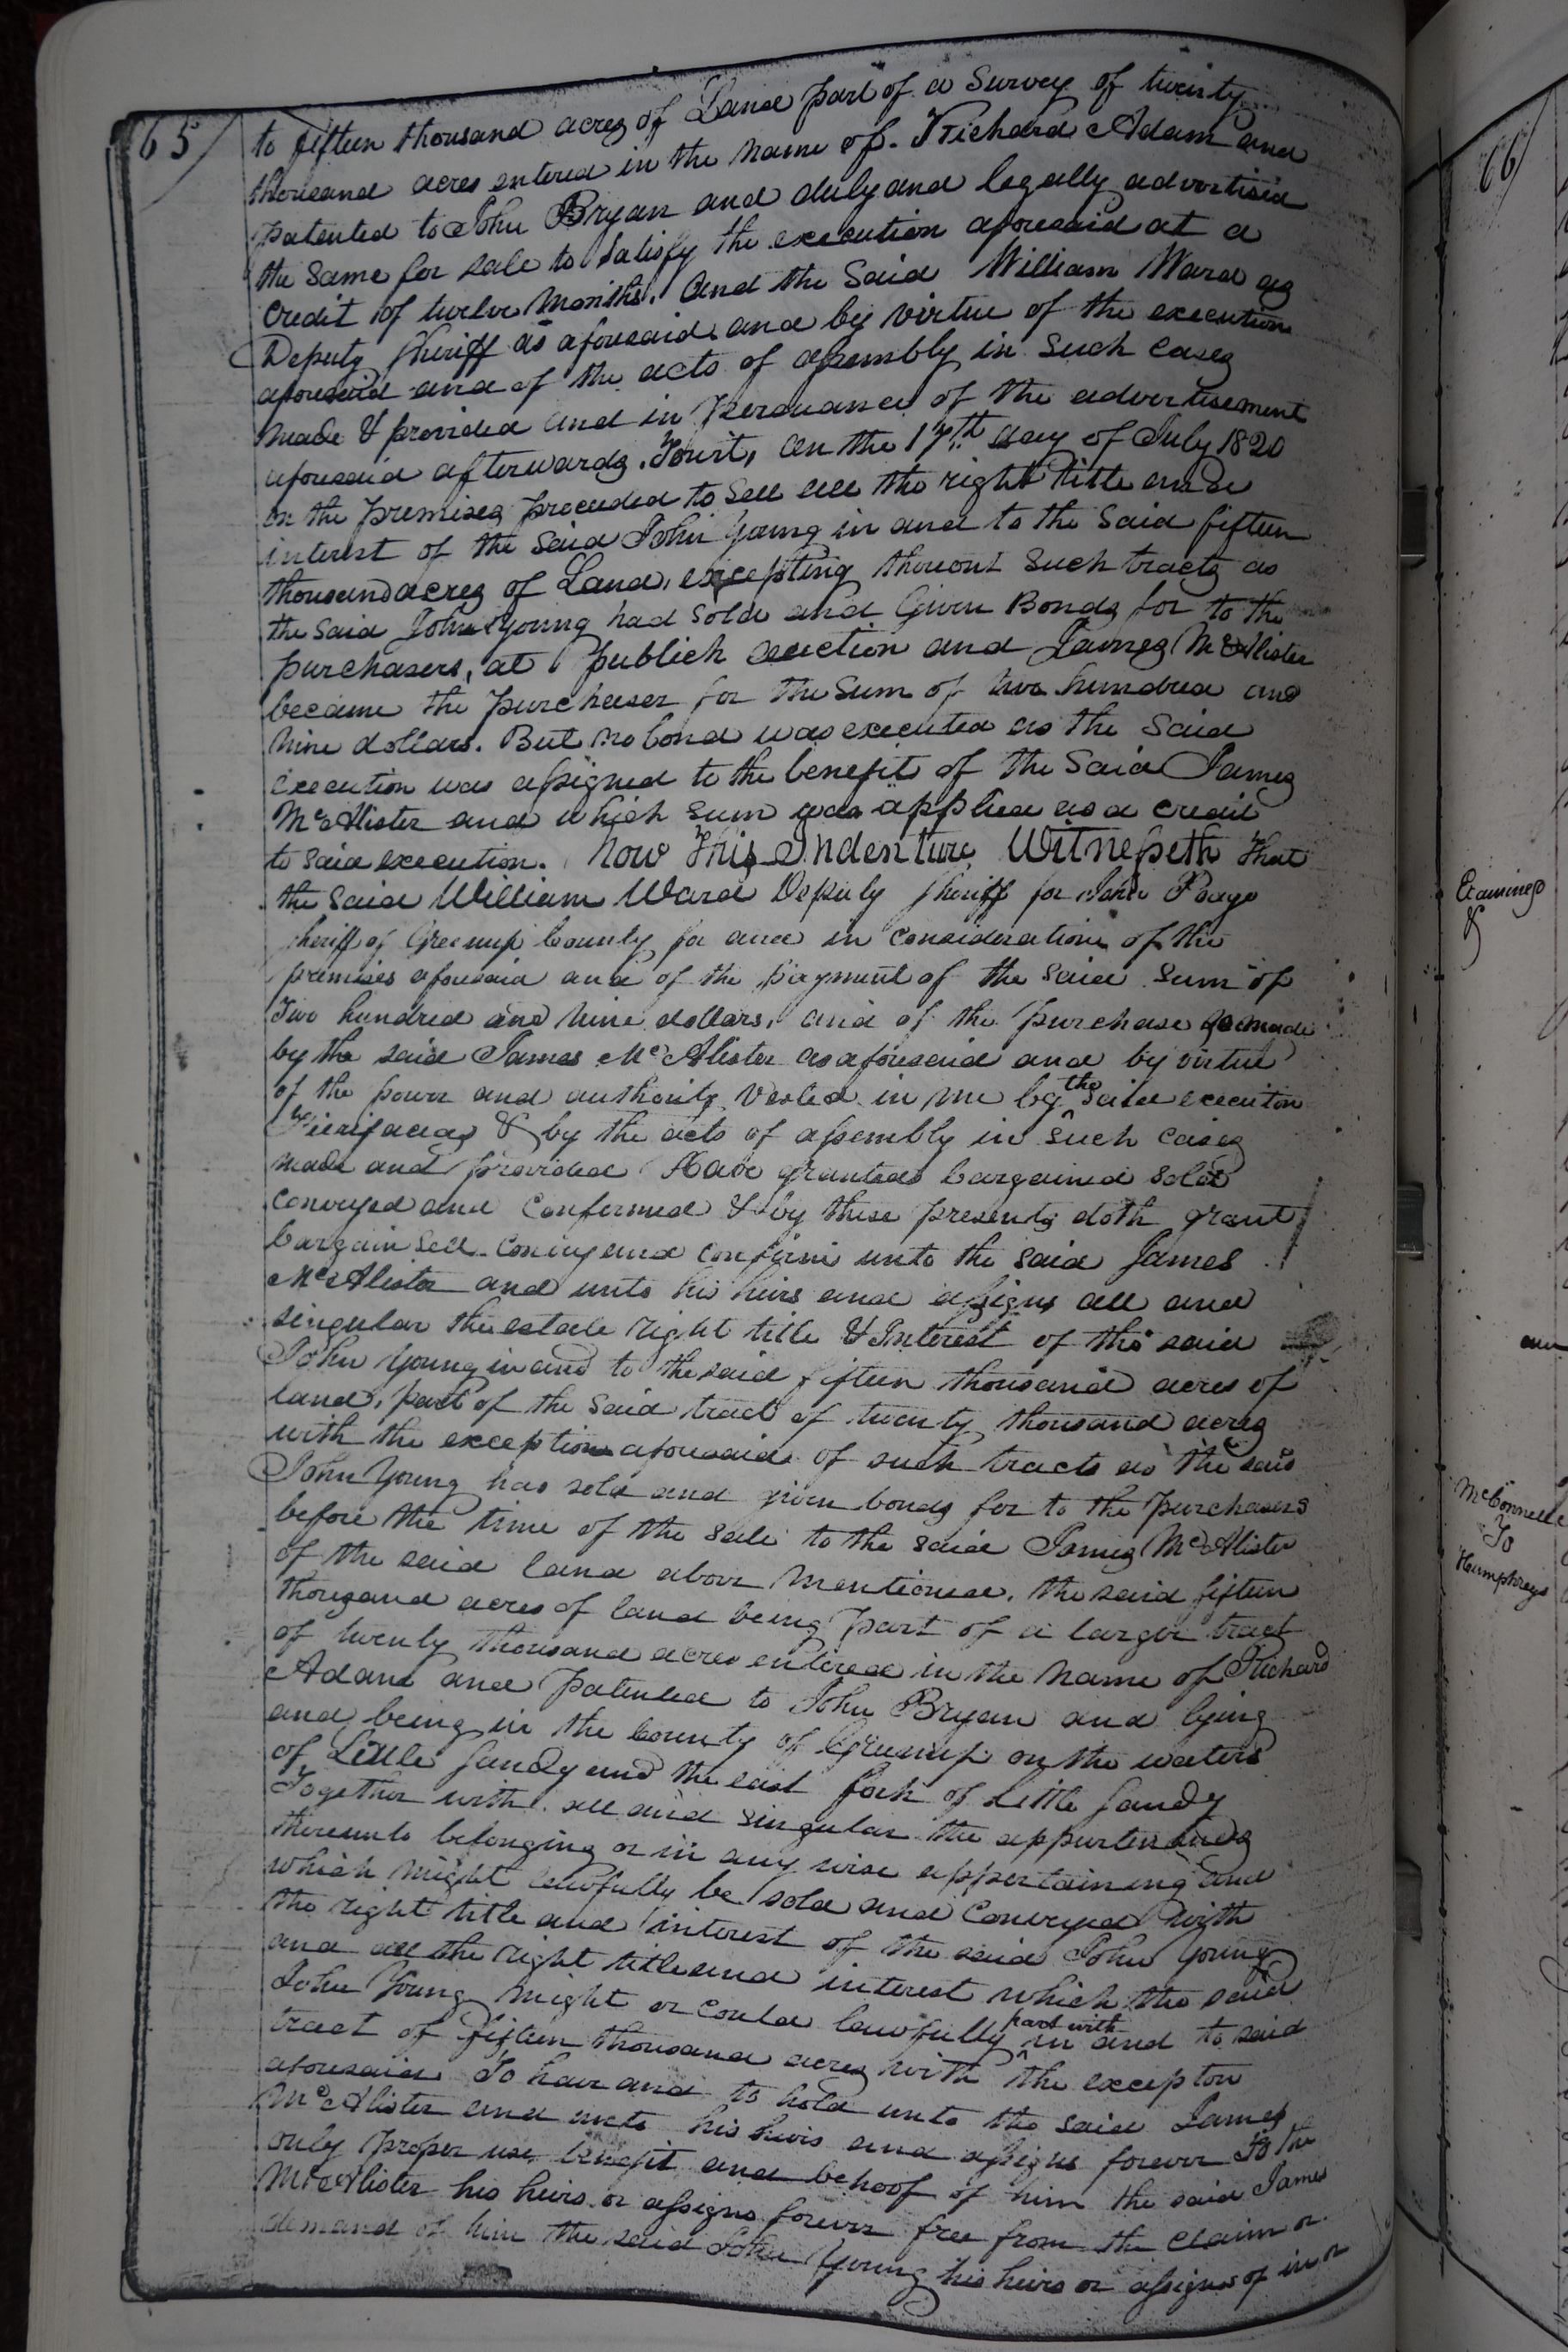 65
to fifteen thousand acres of Land part of a Survey of twenty
thousand acres entered in the name of. Richard Adam and
patented to John Bryan and duly and legally advertised
the same for sale to satisfy the execution aforesaid at a
credit of twelve months. and the Said William Ward as
Deputy Sheriff as aforesaid and by virtue of the execution
aforesaid and of the acts of assembly in such cases
made & provided and in persuance of the advertisement
aforesaid afterwards, Towit, on the 17th day of July 1820
on the premises proceeded to sell all the right title and
interest of the said John Young in and to the said fifteen
thousand acres of Land, excepting thereout such tracts as
the said John Young had sold and Given Bonds for to the
purchasers, at publick auction and James McAlister
became the purchaser for the sum of two hundred and
nine dollars. But no bond was executed as the said
execution was assigned to the benefit of the said James
McAlister and which sum was applied as a credit
to said execution. Now This Indenture Witnesseth that
the said William Ward Deputy Sheriff for John Poage
sheriff of Greenup County for and in consideration of the
premises aforesaid and of the payment of the said sum of
Two hundred and nine dollars, and of the purchase so made
by the said James McAlister as aforesaid and by virtue
of the power and authority vested in me by the said execution
Fierifacias & by the acts of assembly in such cases
made and provided Have granted bargained sold
conveyed and confirmed & by these presents doth grant
bargain sell convey and confirm unto the said James
McAlister and unto his heirs and assigns all and
singular the estate right title & Interest of the said
John Young in and to the said fifteen thousand acres of
land, part of the said tract of twenty thousand acres
with the exception aforesaid of such tracts as the said
John Young has sold and given bonds for to the purchasers
before the time of the sale to the said James McAlister
of the said land above mentioned, the said fifteen
thousand acres of land being part of a larger tract
of twenty thousand acres entered in the name of Richard
Adams and patented to John Bryan and lying
and being in the County of Greenup on the waters
of Little Sandy and the east fork of Little Sandy
Together with all and singular the appurtenances
thereunto belonging or in any wise appertaining and
which might lawfully be sold and conveyed with
the right title and interest of the said John Young
and all the right title and interest which the said
John Young might or could lawfully part with in and to said
tract of fifteen thousand acres with the exception
aforesaid To have and to hold unto the said James
McAlister and unto his heirs and assigns forever To the
only proper use benefit and behoof of him the said James
McAlister his heirs or assigns forever free from the claim or
demand of him the said John Young his heirs or assigns of in or
66
Examined
&
McConnell
To
Humphreys